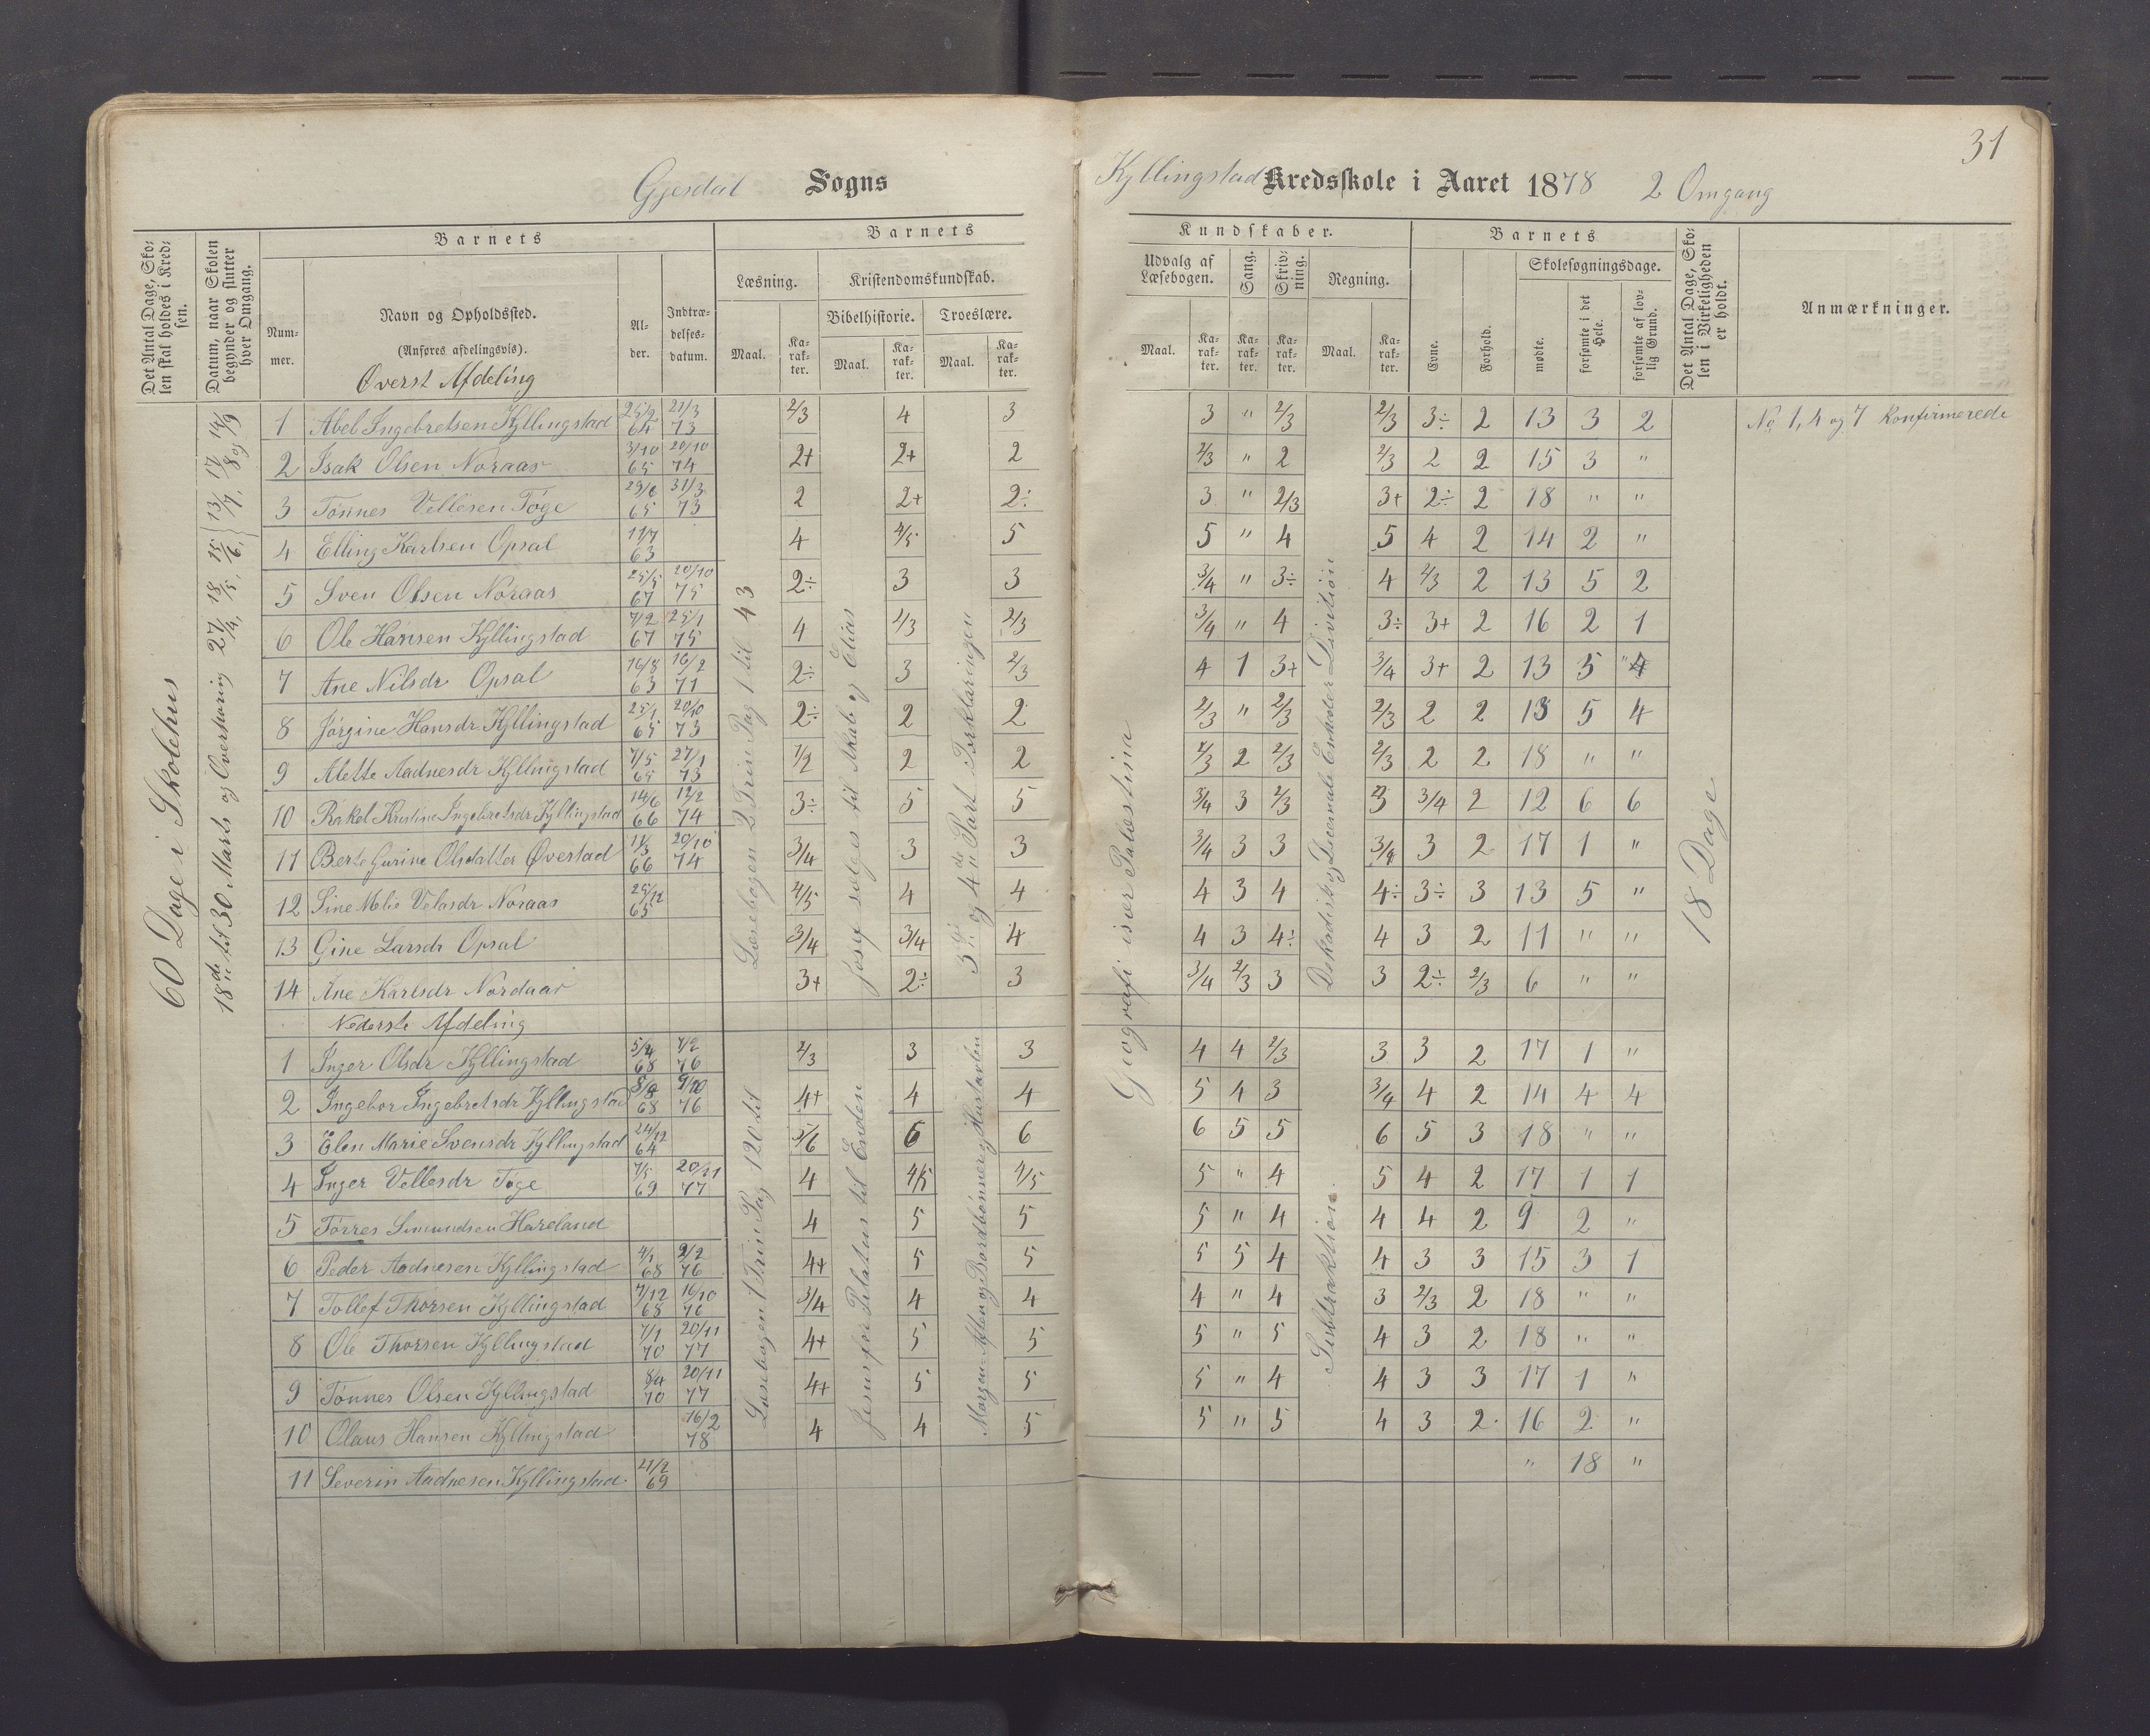 31
Gjesdal Sogns Kyllingstad Kredsskole i Aaret 1878 2 Omgang
Det Antal Dage, Skolen skal holdes i Kredsen.
Datum, naar Skolen begynder og slutter hver Omgang.
Barnets
Nummer.
Navn og Opholdssted.
(Anføres afdelingsvis).
Alder.
Indtrædelsesdatum.
Barnets Kundskaber.
Læsning.
Maal. Karakter.
Kristendomskundskab.
Bibelhistorie. Troeslære.
Maal. Karakter. Maal. Karakter.
Udvalg af Læsebogen.
Maal. Karakter.
Sang. Karakter.
Skrivning. Karakter.
Regning.
Maal. Karakter.
Barnets
Evne. Forhold.
Skolesøgningsdage.
mødte. forsømte i det Hele. forsømte af lovlig Grund.
Det Antal Dage, Skolen i Virkeligheden er holdt.
Anmærkninger.
60 Dage i Skolehus
18de til 30 Marts og Overhøring 27/4, 18/5, 15/6, 13/7, 17/8 og 14/9
Øverst Afdeling
Læsebogen 2 Trin Pag 1 til 43
Josef sælges til Akab og Elias
3die og 4de Part i Forklaringen
Geografi især Palæstina
Dekadisk og Decemale Enheder Division
18 Dage
No 1, 4 og 7 Konfirmerede
1 Abel Ingebretsen Kyllingstad 25/2 64 21/3 73 2/3 4 3 3 " 2/3 2/3 3÷ 2 13 3 2
2 Isak Olsen Noraas 3/10 65 20/10 74 2+ 2+ 2 2/3 " 2 2/3 2 2 15 3 "
3 Tønnes Vellesen Tøge 29/6 65 31/3 73 2 2+ 2÷ 3 " 2/3 3+ 2÷ 2 18 " "
4 Elling Karlsen Opsal 11/7 63 4 4/5 5 5 " 4 5 4 2 14 2 "
5 Sven Olsen Noraas 25/5 67 20/10 75 2÷ 3 3 3/4 " 3÷ 4 2/3 2 13 5 2
6 Ole Hansen Kyllingstad 7/2 67 25/1 75 4 2/3 2/3 3/4 " 4 3÷ 3+ 2 16 2 1
7 Ane Nilsdr Opsal 16/8 63 16/2 71 2÷ 3 2/3 4 1 3+ 3/4 3+ 2 13 5 " 4
8 Jørgine Hansdr Kyllingstad 25/1 65 20/10 73 2÷ 2 2 2/3 " 2/3 2/3 2 2 13 5 4
9 Alette Aadnesdr Kyllingstad 7/5 65 27/1 73 1/2 2 2 2/3 2 2/3 2/3 2 2 18 " "
10 Rakel Kristine Ingebretsdr Kyllingstad 14/6 66 12/2 74 3÷ 5 5 3/4 3 2/3 3 3/4 2 12 6 6
11 Berte Gurine Olsdatter Øvestad 66 20/10 74 3/4 3 3 3/4 3 3 3/4 3 2 17 1 "
12 Sine Velasdr Noraas 25/12 65 4/5 4 4 4 3 4 4÷ 3÷ 3 13 5 "
13 Gine Larsdr Opsal 3/4 3/4 4 4 3 4÷ 4 3 2 11 " "
14 Ane Karlsdr Nordaas 3+ 2÷ 3 3/4 2/3 3 3 2÷ 2/3 6 " "
Nederste Afdeling
Læsebogen 1 Trin Pag 120 til
Jesus for Pilatus til Enden
Morgen- Aften og Bordbønner og Hustavlen
Subtraktion.
1 Inger Olsdr Kyllingstad 5/4 68 7/2 76 2/3 3 3 4 4 2/3 3 3 2 17 1 "
2 Ingebor Ingebretsdr Kyllingstad 68 9/10 76 4+ 4 4 5 4 3 3/4 4 2 14 4 4
3 Elen Marie Svensdr Kyllingstad 24/12 64 5/6 6 6 6 5 5 6 5 3 18 " "
4 Inger Vellesdr Tøge 7/5 69 20/11 77 4 4/5 4/5 5 " 4 5 4 2 17 1 1
5 Tørres Simundsen Hareland 4 5 5 5 " 4 4 4 2 9 2 "
6 Peder Aadnesen Kyllingstad 4/1 68 2/2 76 4+ 5 5 5 5 4 4 3 3 15 3 1
7 Tollef Thorsen Kyllingstad 7/12 68 16/10 76 3/4 4 4 4 " 4 3 2/3 2 18 " "
8 Ole Thorsen Kyllingstad 7/1 70 20/11 77 4+ 5 5 5 " 5 4 3 2 18 " "
9 Tønnes Olsen Kyllingstad 8/4 70 20/11 77 4+ 5 5 5 " 4 4 3 3 17 1 "
10 Olaus Hansen Kyllingstad 16/2 78 4 4 5 5 " 5 4 3 2 16 2 "
11 Severin Aadnesen Kyllingstad. 21/2 69 " 18 "